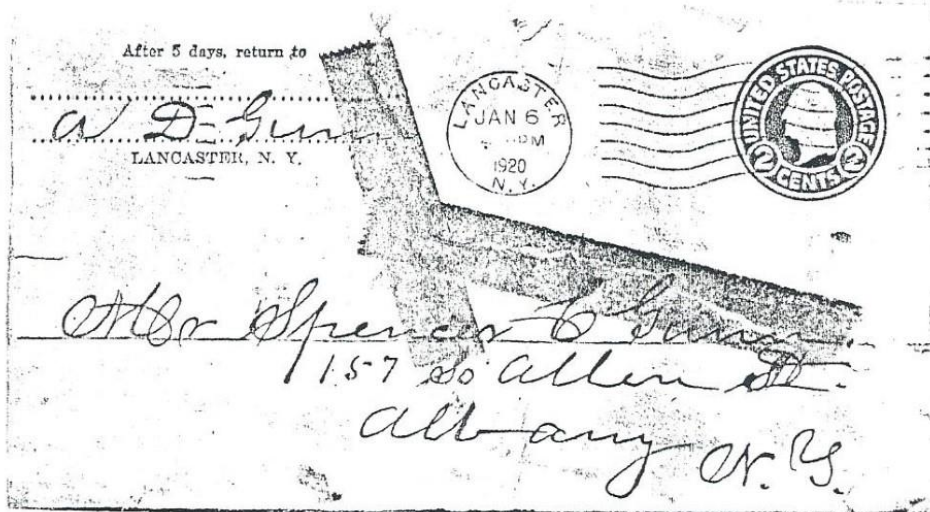 After 5 days, return to
W D Gunn
LANCASTER, N. Y.
LANCASTER
JAN 6
PM
1920
N.Y.
UNITED STATES POSTAGE
2 CENTS 2
Mr Spencer C Gunn.
157 So Allen St.
Albany
N.Y.